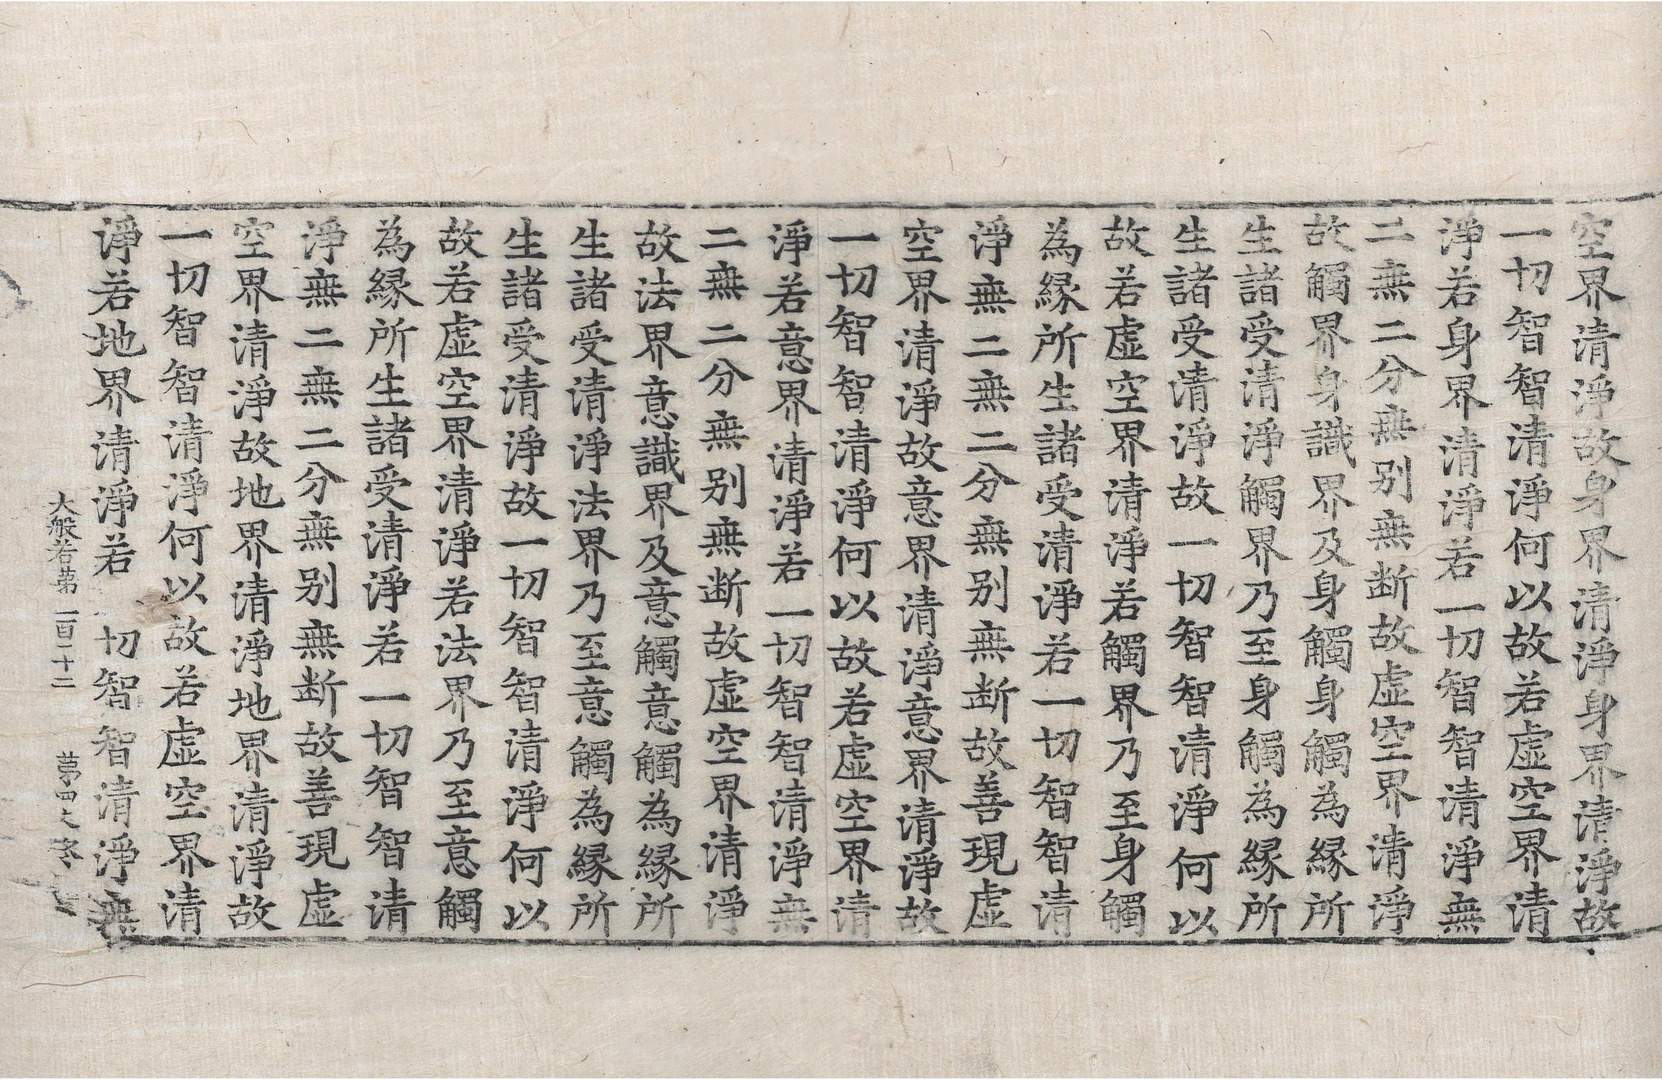 空界清淨故身界清淨身界清淨故
一切智智清淨何以故若虚空界清
淨若身界清淨若一切智智清淨無
二無二分無别無断故虚空界清淨
故觸界身識界及身觸身觸為縁所
生諸受清淨觸界乃至身觸為縁所
生諸受清淨故一切智智清淨何以
故若虚空界清淨若觸界乃至身觸
為縁所生諸受清淨若一切智智清
淨無二無二分無别無断故善現虚
空界清淨故意界清淨意界清淨故
一切智智清淨何以故若虚空界清
淨若意界清淨若一切智智清淨無
二無二分無别無断故虚空界清淨
故法界意識界及意觸意觸為縁所
生諸受清淨法界乃至意觸為縁所
生諸受清淨故一切智智清淨何以
故若虚空界清淨若法界乃至意觸
為縁所生諸受清淨若一切智智清
淨無二無二分無别無断故善現虚
空界清淨故地界清淨地界清淨故
一切智智清淨何以故若虚空界清
淨若地界清淨若 切智智清淨無
大般若第 第四